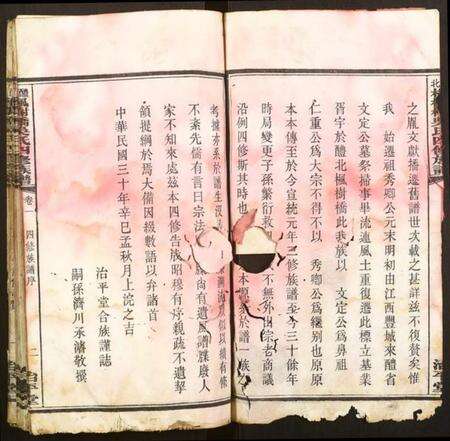 之胤文獻播遷舊譜世次載之甚詳茲不復贅惟
我 始遷祖秀卿公元末明初由江西豐城來醴省
文定公墓祭掃事畢流連風土重復遷此標立基業
胥宇於醴北楓樹橋此我族以 文定公為鼻祖
仁重公為大宗不得不以 秀卿公為繼別也原原
本本傳至於今宣統元年 修族譜至今三十餘年
時局變更子孫繁衍
沿例四修斯其時也 本 族譜一族之
考據亦系於譜生沒
不紊先儒有言曰宗法 族尚有遺風譜牒廢人
家不知來處茲本四修告成昭穆有序親疏不遺挈
領提綱於焉大備因綴數語以弁諸首
中華民國三十年辛巳孟秋月上浣之吉
治平堂合族謹誌
嗣孫濟川承濤敬撰
卷一
四修族譜序
二